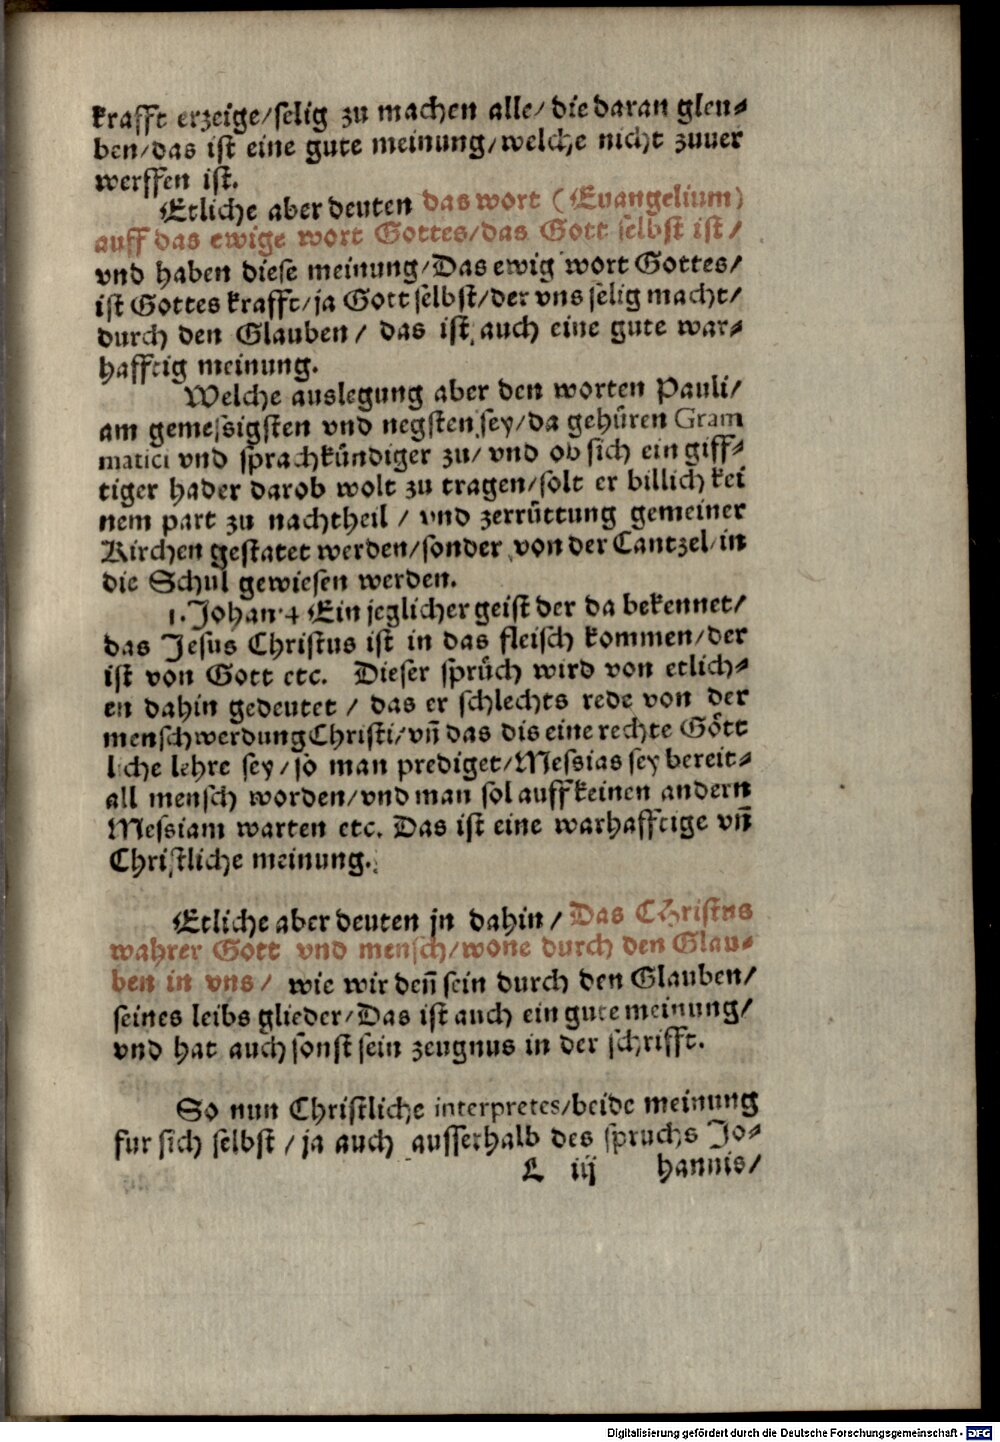 krafft erzeige/selig zu machen alle/die daran gleu-
ben/das ist eine gute meinung/welche nicht zuuer
werffen ist.
Etliche aber deuten das wort (Euangelium)
auff das ewige wort Gottes/das Gott selbst ist/
vnd haben diese meinung/Das ewig wort Gottes/
ist Gottes krafft/ja Gott selbst/der vns selig macht/
durch den Glauben/ das ist auch eine gute war-
hafftig meinung.
Welche auslegung aber den worten Pauli/
am gemessigsten vnd negsten sey/da gehüren Gram
matici vnd sprachkündiger zu/ vnd ob sich ein giff-
tiger hader darob wolt zu tragen/solt er billich kei
nem part zu nachtheil / vnd zerrüttung gemeiner
Kirchen gestatet werden/sonder von der Cantzel/in
die Schul gewiesen werden.
1. Johan. 4 Ein jeglicher geist der da bekennet/
das Jesus Christus ist in das fleisch kommen/der
ist von Gott etc. Dieser sprüch wird von etlich-
en dahin gedeutet / das er schlechts rede von der
menschwerdung Christi/vn̄ das dis eine rechte Gött
liche lehre sey/so man prediget/Messias sey bereit-
all mensch worden/vnd man sol auff keinen andern
Messiam warten etc. Das ist eine warhafftige vn̄
Christliche meinung.
Etliche aber deuten jn dahin/ Das Christus
wahrer Gott vnd mensch/wone durch den Glau-
ben in vns/ wie wir den̄ sein durch den Glauben/
seines leibs glieder/Das ist auch ein gute meinung/
vnd hat auch sonst sein zeugnus in der schrifft.
So nun Christliche interpretes/beide meinung
fur sich selbst / ja auch ausserhalb des spruchs Jo-
L iij hannis/
Digitalisierung gefördert durch die Deutsche Forschungsgemeinschaft - DFG